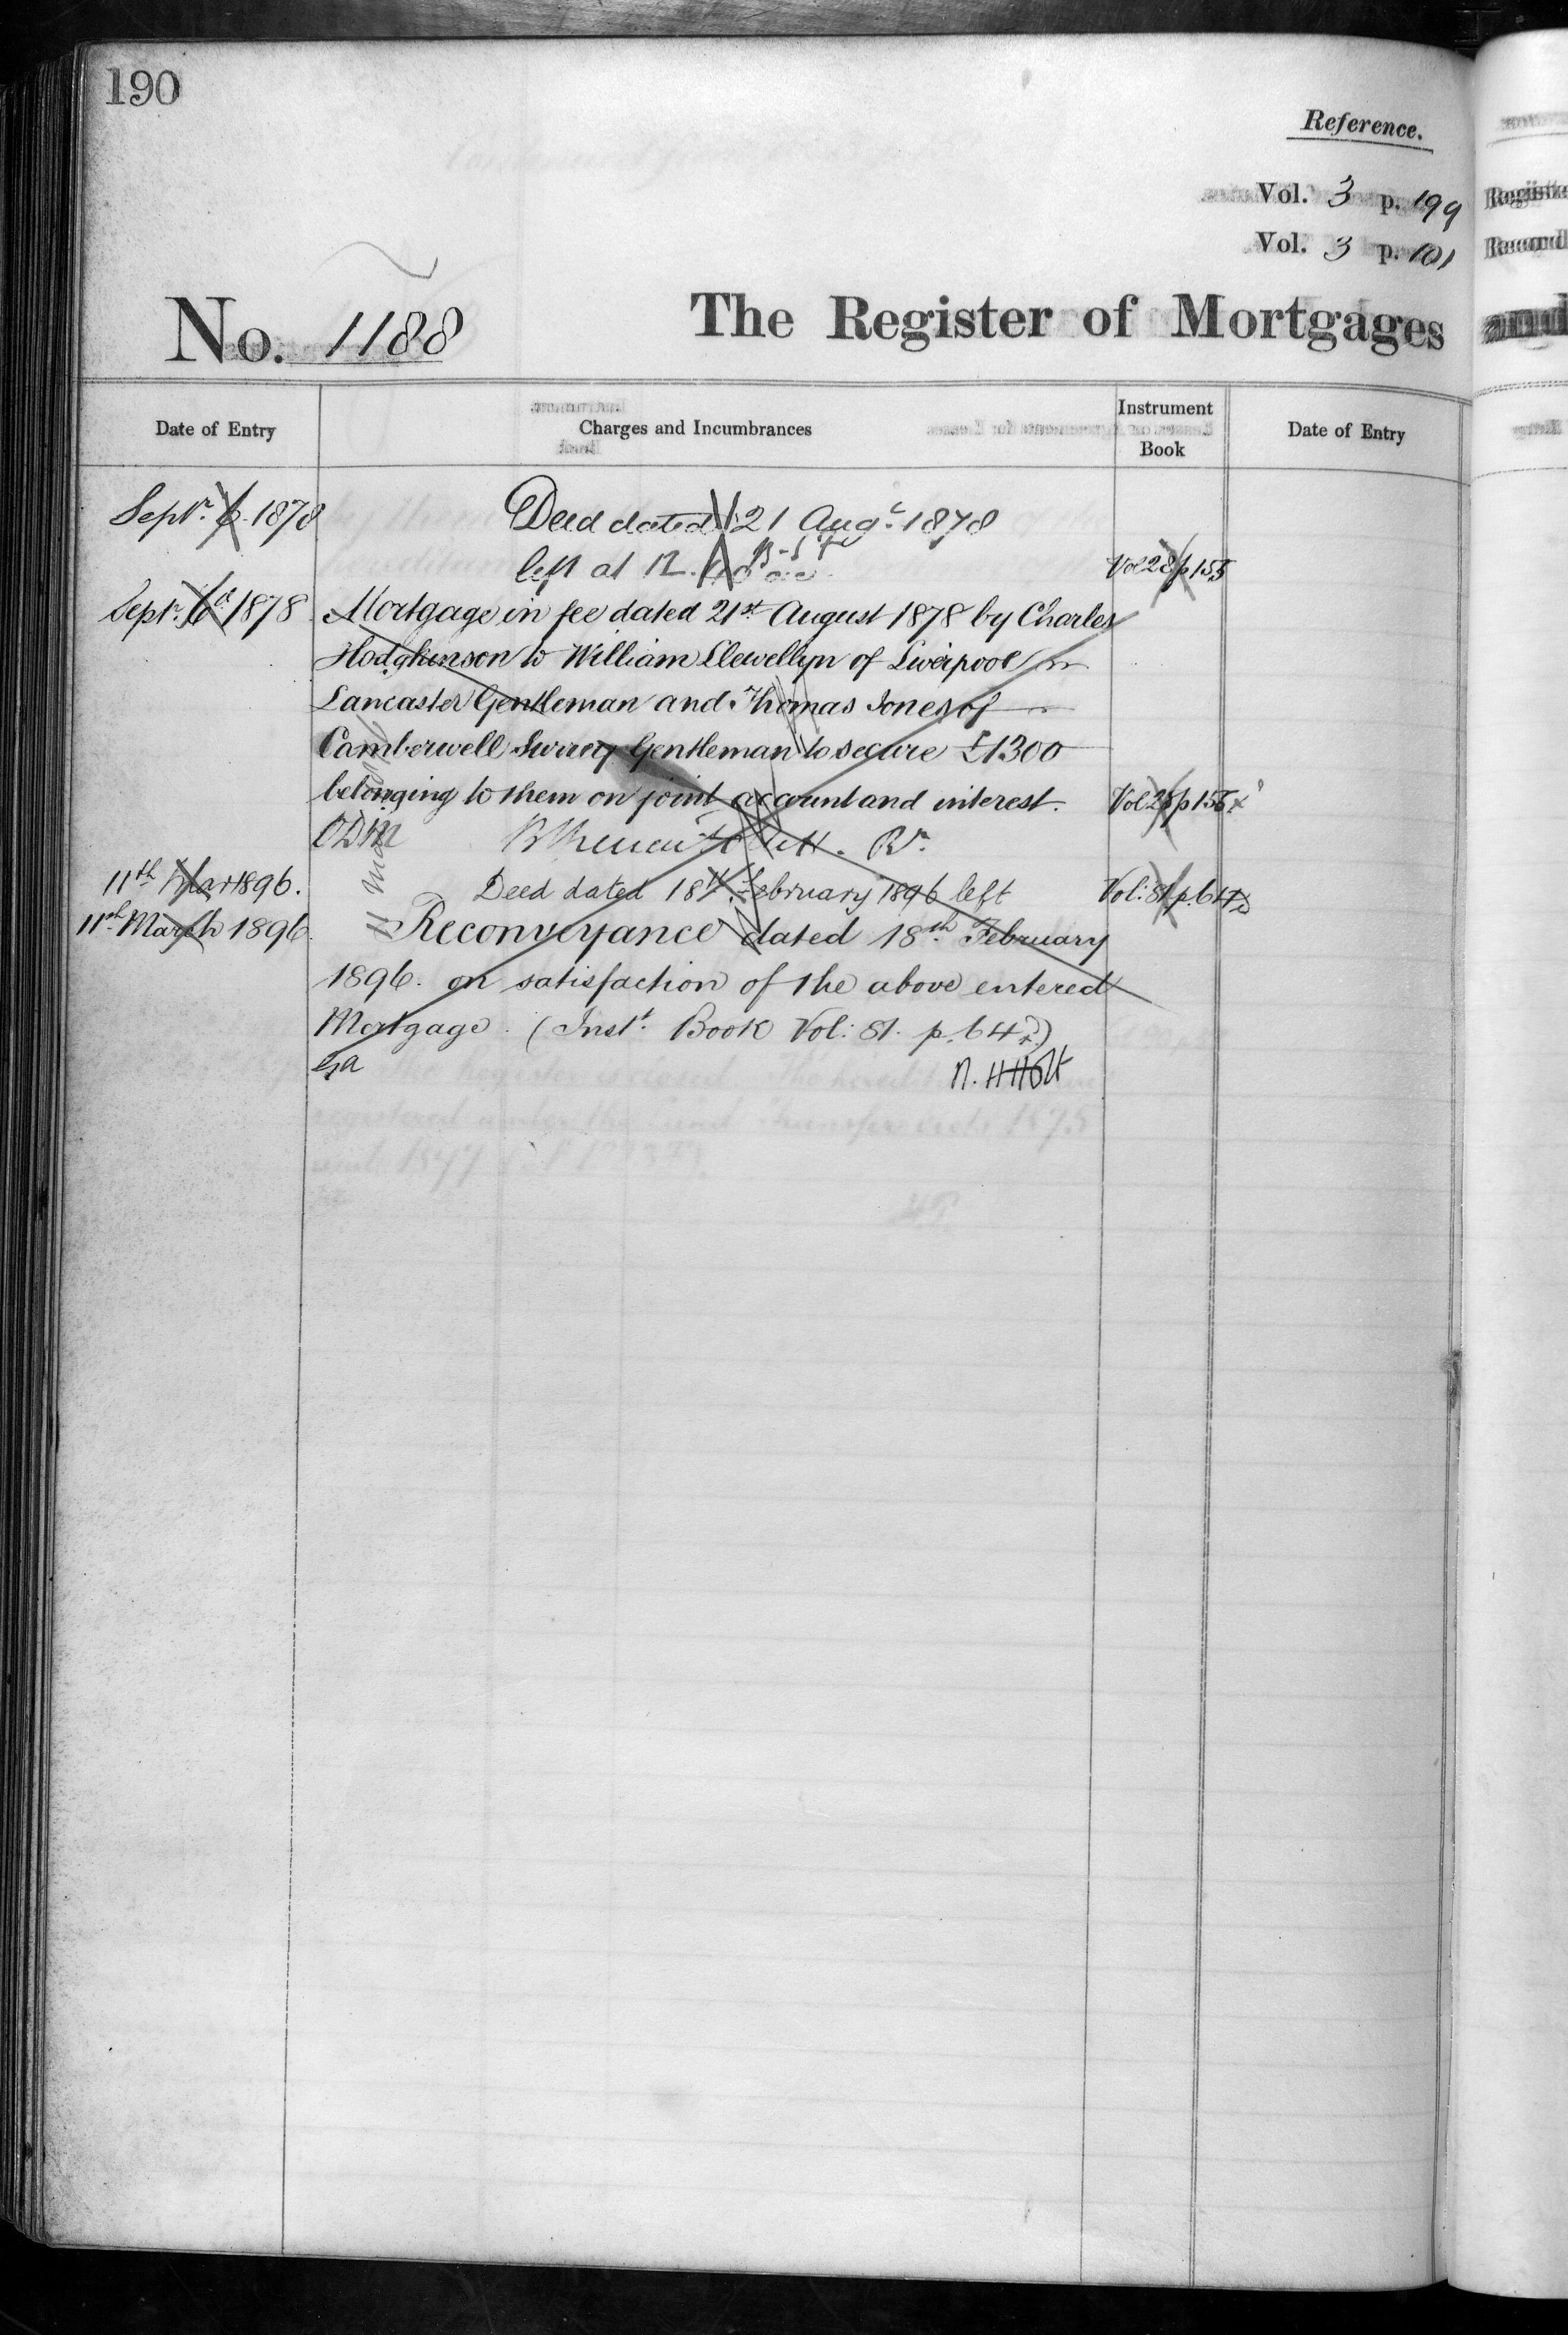 190
Reference.
Vol. 3 p. 199
Vol. 3 p. 101
No. 1188
The Register of Mortgages
Date of Entry
Charges and Incumbrances
Instrument
Book
Date of Entry
Septr. 6. 1878
Deed dated 21 Augt. 1878
left at 12.
Vol 28 p 155
Septr. 6th 1878
Mortgage in fee dated 21st August 1878 by Charles
Hodgkinson to William Llewellyn of Liverpool
Lancaster Gentleman and Thomas Jones of
Camberwell Surrey Gentleman to secure £1300
belonging to them on joint account and interest.
Vol 28 p 155
11th Mar 1896.
Deed dated 18th February 1896 left
Vol: 81 p. 64
11th March 1896.
Reconveyance dated 18th February
1896. on satisfaction of the above entered
Mortgage. (Inst. Book Vol: 81. p. 64)
N. H Holt